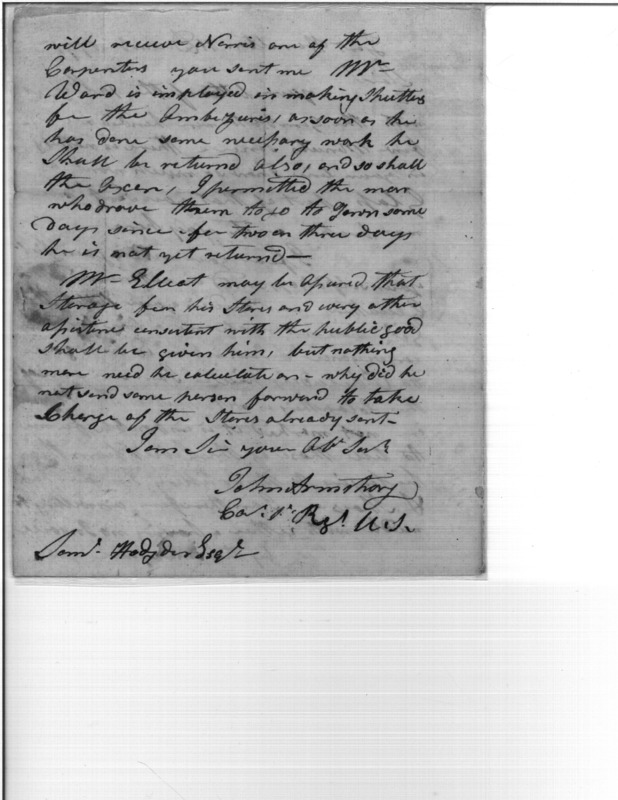 will receive Norris one of the
Carpenters you sent me Mr
Ward is imployed in making Shutters
for the Ambezuris, as soon as he
has done some necessary work he
Shall be returnd also, and so shall
the Oxen, I permitted the man
who drove them to go to Town some
days since for two or three days
he is not yet returnd—
Mr Elleot may be assured that
Storage for his Stores and every other
assistence consistent with the public good
shall be given him, but nothing
more need he calculate on - why did he
not send some person forward to take
Charge of the Stores already sent-
I am Sir your Obt Servt
John Armstrong
Cap. 1st Regt. U.S.
Saml Hodgdon Esqr